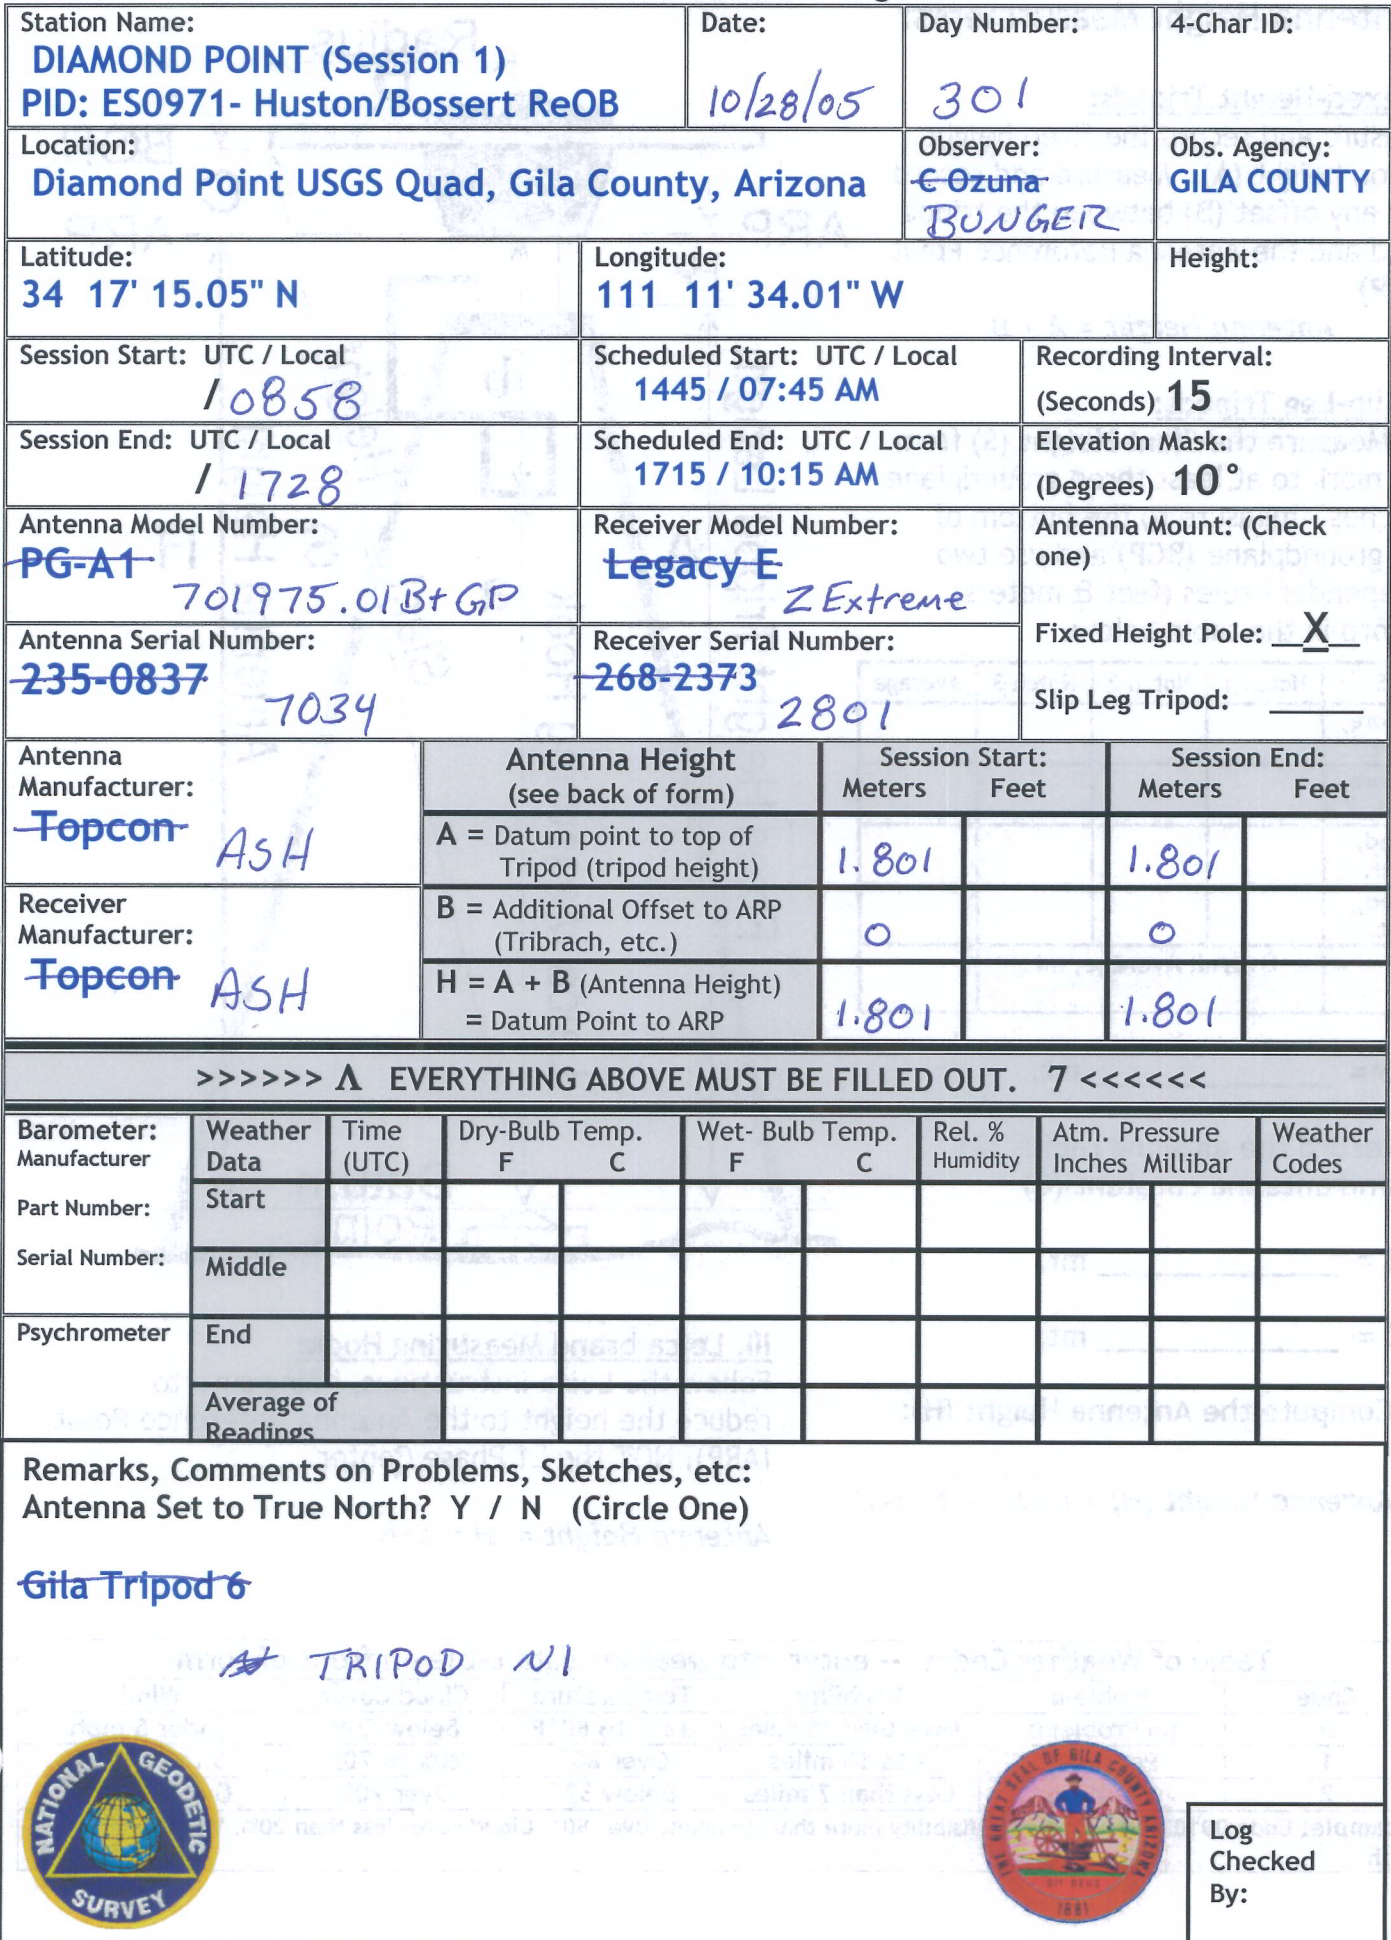 Station Name:
DIAMOND POINT (Session 1)
PID: ES0971- Huston/Bossert ReOB
Date:
10/28/05
Day Number:
301
4-Char ID:
Location:
Diamond Point USGS Quad, Gila County, Arizona
Observer:
C Ozuna
BUNGER
Obs. Agency:
GILA COUNTY
Latitude:
34 17' 15.05" N
Longitude:
111 11' 34.01" W
Height:
Session Start: UTC / Local
/ 0858
Scheduled Start: UTC / Local
1445 / 07:45 AM
Recording Interval:
(Seconds) 15
Session End: UTC / Local
/ 1728
Scheduled End: UTC / Local
1715 / 10:15 AM
Elevation Mask:
(Degrees) 10°
Antenna Model Number:
PG-A1
701975.01B+GP
Receiver Model Number:
Legacy E
Z Extreme
Antenna Mount: (Check
one)
Fixed Height Pole: __X__
Slip Leg Tripod: ______
Antenna Serial Number:
235-0837
7034
Receiver Serial Number:
268-2373
2801
Antenna
Manufacturer:
Topcon
ASH
Receiver
Manufacturer:
Topcon
ASH
Antenna Height
(see back of form)
Session Start:
Meters Feet
Session End:
Meters Feet
A = Datum point to top of
Tripod (tripod height)
1.801 1.801
B = Additional Offset to ARP
(Tribrach, etc.)
0 0
H = A + B (Antenna Height)
= Datum Point to ARP
1.801 1.801
>>>>>> Λ EVERYTHING ABOVE MUST BE FILLED OUT. 7 <<<<<<
Barometer:
Manufacturer
Part Number:
Serial Number:
Psychrometer
Weather
Data
Time
(UTC)
Dry-Bulb Temp.
F C
Wet- Bulb Temp.
F C
Rel. %
Humidity
Atm. Pressure
Inches Millibar
Weather
Codes
Start
Middle
End
Average of
Readings
Remarks, Comments on Problems, Sketches, etc:
Antenna Set to True North? Y / N (Circle One)
Gila Tripod 6
TRIPOD N1
NATIONAL GEODETIC SURVEY
THE GREAT SEAL OF GILA COUNTY ARIZONA
1881
Log
Checked
By: